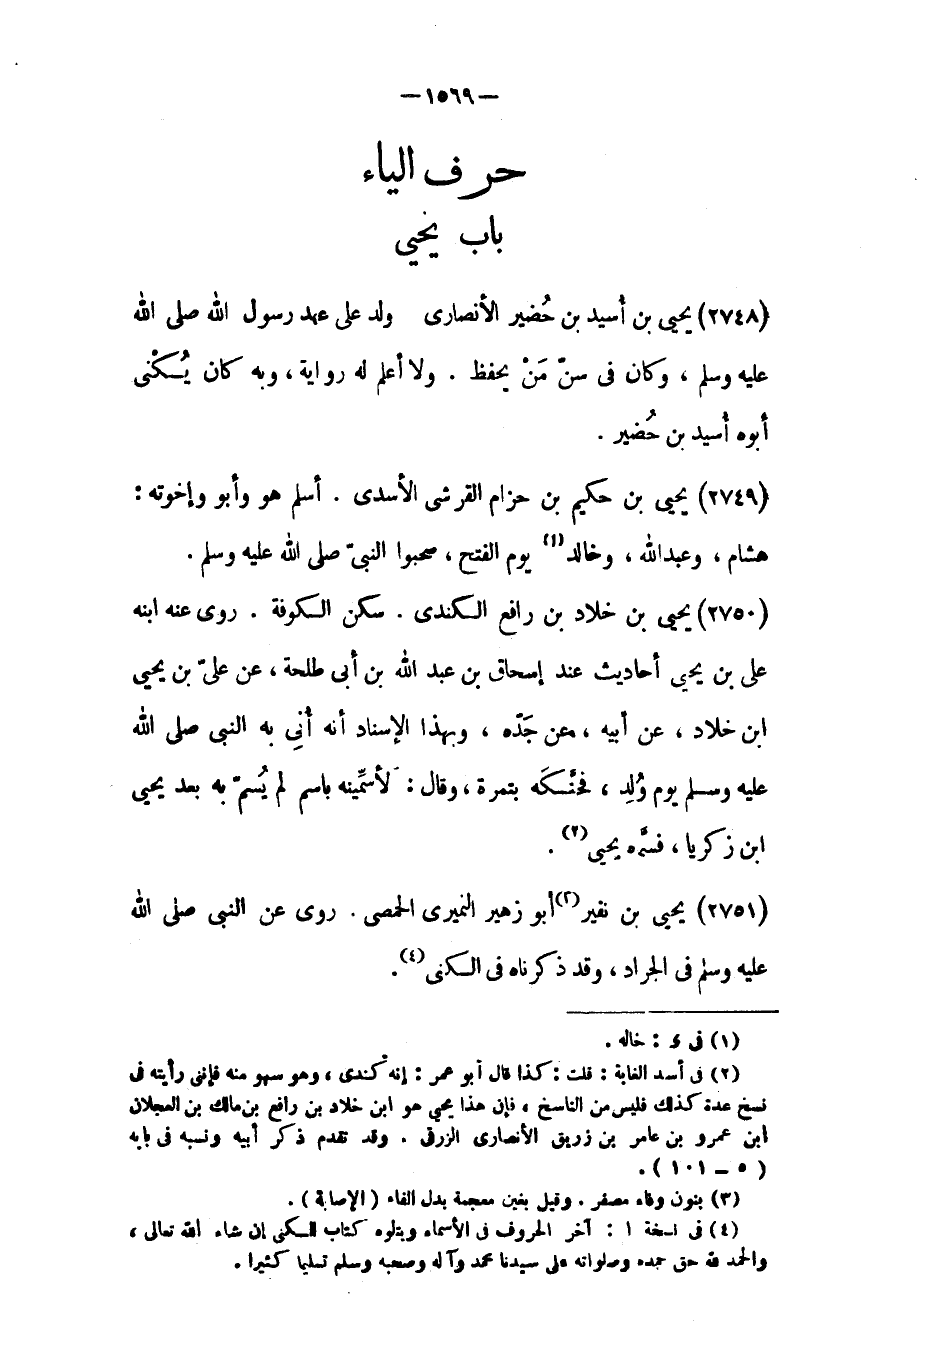 — ١٥٦٩ —
حرف الياء
باب يحيى
(٢٧٤٨) يحيى بن أسيد بن حُضير الأنصارى ولد على عهد رسول الله صلى الله
عليه وسلم ، وكان فى سنّ مَنْ يحفظ . ولا أعلم له رواية ، وبه كان يُكْنى
أبوه أسيد بن حُضير .
(٢٧٤٩) يحيى بن حكيم بن حزام القرشى الأسدى . أسلم هو وأبو وإخوته :
هشام ، وعبدالله ، وخالد(١) يوم الفتح ، صحبوا النبىّ صلى الله عليه وسلم .
(٢٧٥٠) يحيى بن خلاد بن رافع الكندى . سكن الكوفة . روى عنه ابنه
على بن يحيى أحاديث عند إسحاق بن عبد الله بن أبى طلحة ، عن علىّ بن يحيى
ابن خلاد ، عن أبيه ، عن جَدّه ، وبهذا الإسناد أنه أُتِى به النبى صلى الله
عليه وسلم يوم وُلِد ، فحنَّكَه بتمرة ، وقال : لأسمِّينه باسم لم يُسمّ به بعد يحيى
ابن زكريا ، فسمَّاه يحيى(٢) .
(٢٧٥١) يحيى بن نفير(٣) أبو زهير النميرى الحمصى . روى عن النبى صلى الله
عليه وسلم فى الجراد ، وقد ذكرناه فى الكنى(٤) .
(١) فى ى : خاله .
(٢) فى أسد الغابة : قلت : كذا قال أبو عمر : إنه كندى ، وهو سهو منه فإننى رأيته فى
نسخ عدة كذلك فليس من الناسخ ، فإن هذا يحيى هو ابن خلاد بن رافع بن مالك بن العجلان
ابن عمرو بن عامر بن زريق الأنصارى الزرقى . وقد تقدم ذكر أبيه ونسبه فى بابه
( ٥ – ١٠١ ) .
(٣) بنون وفاء مصغر . وقيل بغين معجمة بدل الفاء ( الإصابة ) .
(٤) فى نسخة ا : آخر الحروف فى الأسماء ويتلوه كتاب الكنى إن شاء الله تعالى ،
والحمد لله حق حمده وصلواته على سيدنا محمد وآله وصحبه وسلم تسليما كثيرا .